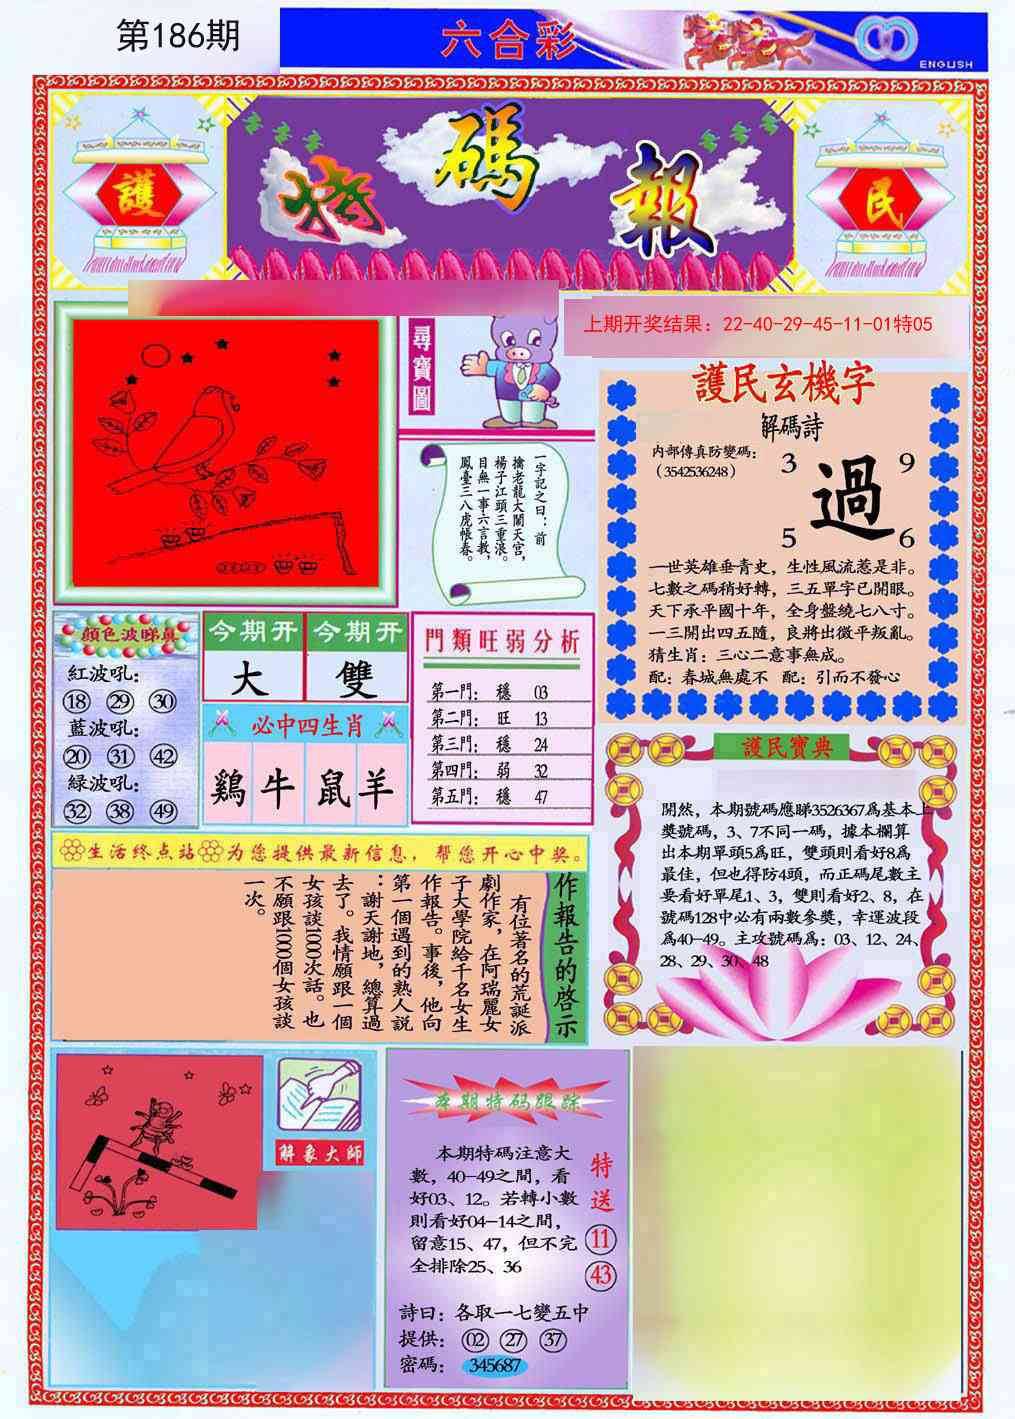 第186期
六合彩
ENGLISH
護
特碼報
民
上期开奖结果：22-40-29-45-11-01特05
尋寶圖
一字記之曰：前
擒老龍大鬧天宮，
楊子江頭三重浪。
目無一事六言教，
鳳臺三八虎帳春。
護民玄機字
解碼詩
内部傳真防變碼：
（3542536248）
3 9
過
5 6
一世英雄垂青史，生性風流惹是非。
七數之碼稍好轉，三五單字已開眼。
天下承平國十年，全身盤繞七八寸。
一三開出四五隨，良將出微平叛亂。
猜生肖：三心二意事無成。
配：春城無處不 配：引而不發心
顔色波睇真
紅波吼：
18 29 30
藍波吼：
20 31 42
緑波吼：
32 38 49
今期开 今期开
大 雙
必中四生肖
鷄 牛 鼠 羊
門類旺弱分析
第一門： 穩 03
第二門： 旺 13
第三門： 穩 24
第四門： 弱 32
第五門： 穩 47
護民寶典
開然，本期號碼應睇3526367爲基本上
獎號碼，3、7不同一碼，據本欄算
出本期單頭5爲旺，雙頭則看好8爲
最佳，但也得防4頭，而正碼尾數主
要看好單尾1、3，雙則看好2、8，在
號碼128中必有兩數參獎，幸運波段
爲40-49。主攻號碼爲：03、12、24、
28、29、30、48
生活终点站 为您提供最新信息，帮您开心中奖。
作報告的啓示
有位著名的荒誕派
劇作家，在阿瑞麗女
子大學院給千名女生
作報告。事後，他向
第一個遇到的熟人説
：謝天謝地，總算過
去了。我情願跟一個
女孩談1000次話。也
不願跟1000個女孩談
一次。
解象大師
本期特码跟踪
本期特碼注意大
數，40-49之間，看
好03、12。若轉小數
則看好04-14之間，
留意15、47，但不完
全排除25、36
特送
11
43
詩曰：各取一七變五中
提供：02 27 37
密碼：345687